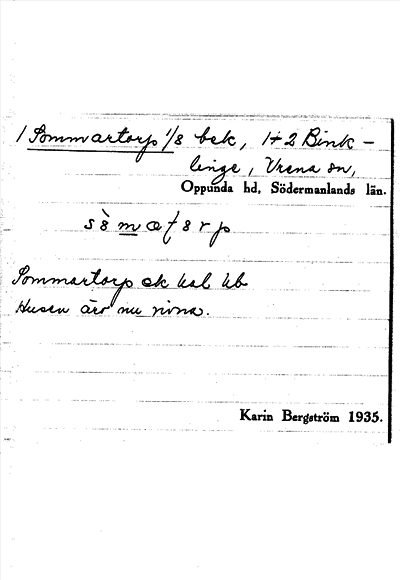 1 Sommartorp 1/8 bek, 1+2 Bink-
linge, Vrena sn,
Oppunda hd, Södermanlands län.
Sommartorp ek kal kb
Husen äro nu rivna.
Karin Bergström 1935.